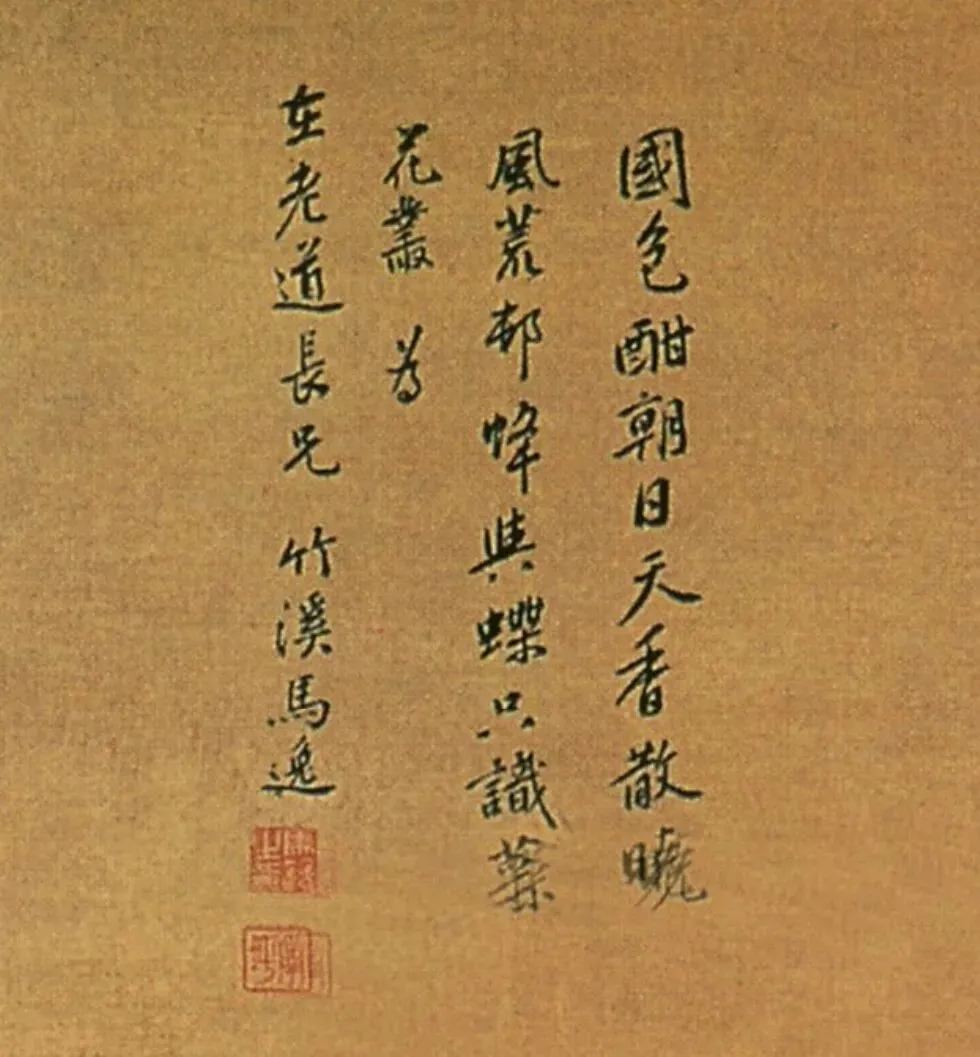 國色酣朝日天香散曉
風荒邨蜂與蝶只識菜
花叢 為
在老道長兄 竹溪馬逸